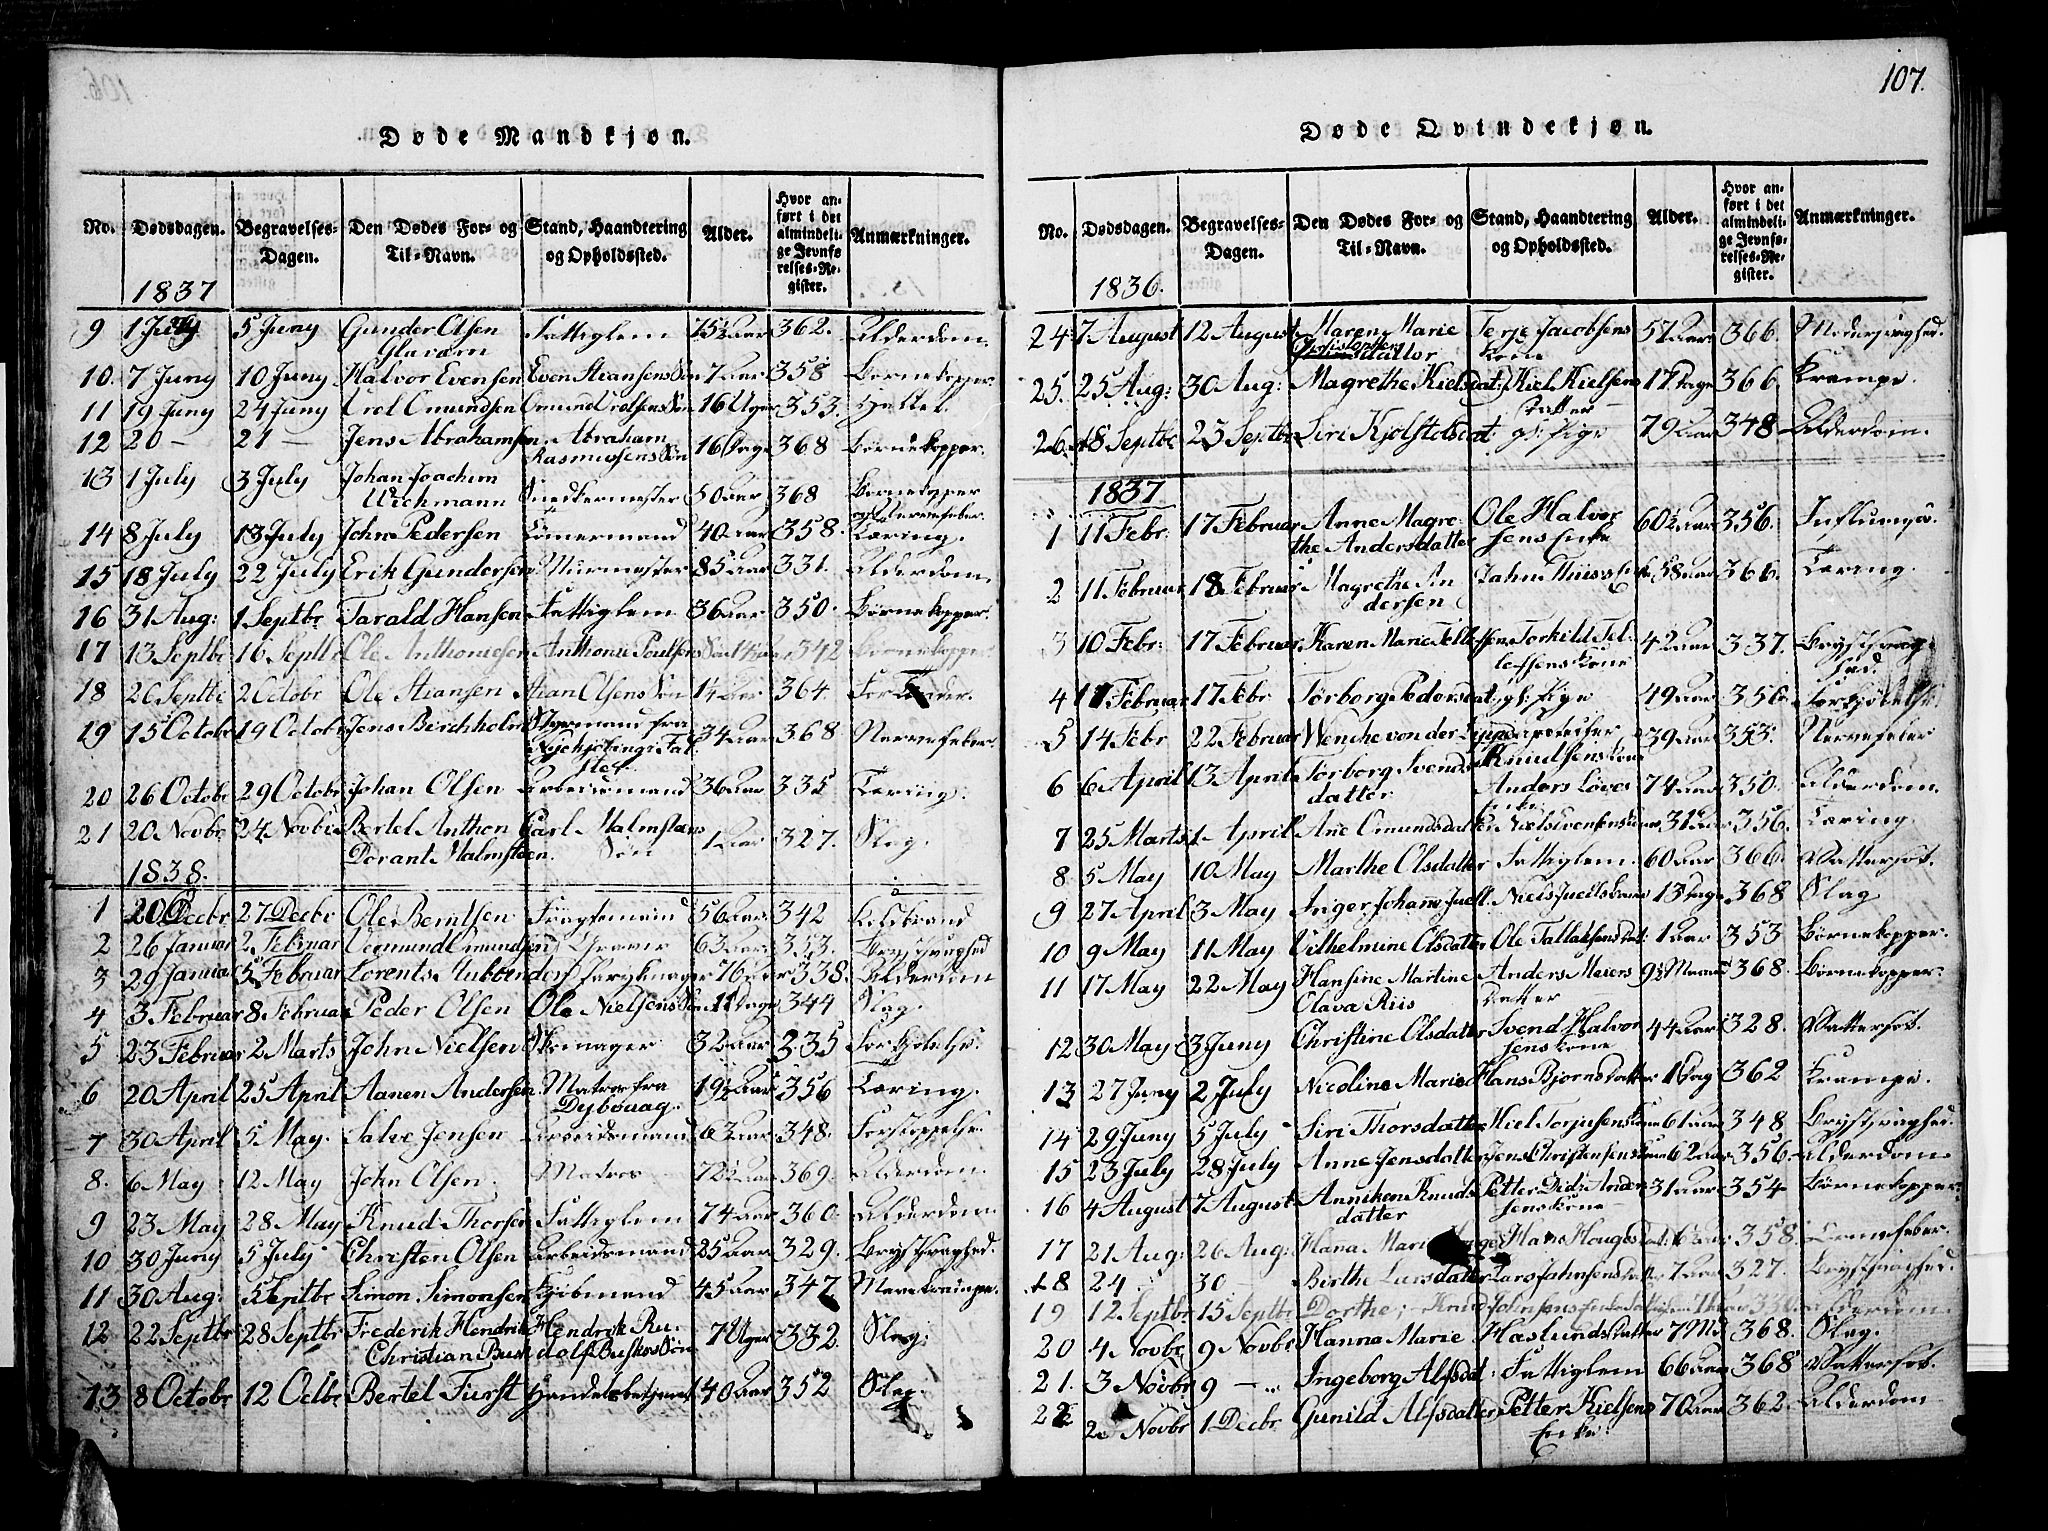 107.
Døde Mandkjøn.
No. Dødsdagen. Begravelses-Dagen. Den Dødes For- og Til-Navn. Stand, Haandtering og Opholdssted. Alder. Hvor anført i det almindelige Jevnførelses-Register. Anmærkninger.
1837
9 1 July 5 Juny Gunder Olsen Fattiglem 75½ Aar 362. Alderdom.
Glavam
10. 7 Juny 10 Juny Halvor Evensen Even Stiansens Søn 7 Aar 358 Børnekopper
11 19 Juny 24 Juny Urol Omundsen Omund Urolsens Søn 16 Uger 353.
12 20 – 21 – Jens Abrahamsen Abraham
Rasmussens Søn 16 Dage 368 Børnekopper.
13 1 July 3 July Johan Joachim
Wichmann Snedkermester 50 Aar 368 Børnekopper
og Nervefeber.
14 8 July 13 July John Pedersen Tømermand 40 Aar 358. Tæring.
15 18 July 22 July Erik Gundersen Murmester 85 Aar 331. Alderdom.
16 31 Aug: 1 Septbr Tarald Hansen Fattiglem 36 Aar 350. Børnekopper.
17 13 Septbr 16 Septbr Ole Anthonisen Anthoni Poulsens Søn 342 Børnekopper
18 26 Septbr 2 Octobr Ole Stiansen Stian Olsens Søn 1¼ Aar 364.
19 15 Octobr 19 Octobr Jens Birchholm Styrmand fra
Nykjøbing i Fal-
ster 34 Aar 368 Nervefeber.
20 26 Octobr 29 Octobr Johan Olsen Arbeidsmand 36 Aar 335 Tæring.
21 20 Novbr 24 Novbr Bertel Anthon Carl Malmsteens
Dorant Malmsteen. Søn 1 Aar 327. Slag.
1838.
1 20 Decbr 27 Decbr Ole Berntsen 56 Aar 342 Koldbrand
2 26 Januar 2 Februar Vermund Omundsen 63 Aar 353. Brystsvaghed
3 29 Januar 5 Februar Lorents Stubbendorf Parykmager 76 Aar 338. Alderdom
4 3 Februar 8 Februar Peder Olsen Ole Nielsens Søn 11 Dage 344 Slag.
5 23 Februar 2 Marts John Nielsen Skomager 32 Aar 335 Forkjølelse.
6 20 April 25 April Aanen Andersen Matros fra
Dybvaag. 19½ Aar 356 Tæring.
7 30 April 5 May. Salve Jensen Arbeidsmand 63 Aar 348. Forstoppelse.
8. 6 May 12 May John Olsen. Matros 72½ Aar 369. Alderdom.
9 23 May 28 May Knud Thorsen Fattiglem 74 Aar 360. Alderdom.
10 30 Juny 5 July Christen Olsen Arbeidsmand 25 Aar 329. Brystsvaghed.
11 30 Aug: 5 Septbr Simon Simonsen Kjøbmand 45 Aar 347
12 22 Septbr 28 Septbr Frederik Hendrik Hendrik Ru-
Christian Busk dolf Busks Søn 7 Uger 332. Slag.
13 8 Octobr 12 Octbr Bertel Furst Handelsbetjent 40 Aar 352 Slag.
Døde Qvindekjøn.
No. Dødsdagen. Begravelses-Dagen. Den Dødes For- og Til-Navn. Stand, Haandtering og Opholdssted. Alder. Hvor anført i det almindelige Jevnførelses-Register. Anmærkninger.
1836.
24 7 August 12 August Maren Marie Terje Jacobsens 57 Aar 366.
Christophersdatter Kone
25. 25 Aug: 30 Aug: Magrethe Kielsdat: Kiel Kielsens 17 Dage 366. Krampe.
Datter
26. 18 Septbr 23 Septbr Siri Kjolstolsdat: gl: Pige 79 Aar 348 Alderdom.
1837
1 11 Febr: 17 Februar Anne Magre- Ole Halvor-
the Andersdatter sens Enke 60½ Aar 356. Influenza.
2 11 Februar 18 Februar Magrethe An- Jahn Thiisss 58 Aar 366. Tæring.
dersen
3 10 Febr: 17 Februar Karen Marie Torkild Tel-
lefsens Kone 42 Aar 337. Brystsvag-
hed.
4 11 Februar 17 Febr Torborg Pedersdat: gl: Pige 49 Aar 356. Forkjølelse.
5 14 Febr 22 Februar Wenche von der Lippe Apotheker
Knudsens Kone 39 Aar 353. Nervefeber
6 6 April 13 April Torborg Svends- Anders Løves
datter Enke 74 Aar 350. Alderdom.
7 25 Marts 1 April Ane Omundsdatter Niels Evensens 31 Aar 356. Tæring.
8 5 May 10 May Marthe Olsdatter Fattiglem. 60 Aar 366. Vattersot.
9 27 April 3 May Inger Johane Juell. Niels Juells 13 Dage 368 Slag
10 9 May 11 May Vilhelmine Olsdatter Ole Tallaksens Dat: 1 Aar 353 Børnekopper.
11 17 May 22 May Hansine Martine Anders Meiers 9½ Maaned 368. Børnekopper.
Olava Riis Datter
12 30 May 3 Juny Christine Olsdatter Svend Halvor-
sens Kone 44 Aar 328. Vattersot.
13 27 Juny 2 July Nicoline Marie Hans Bjorns Datter 1 Dag 362 Krampe.
14 29 Juny 5 July Siri Thorsdatter Kiel Torjusens Kone 61 Aar 348 Brystsvaghed.
15 23 July 28 July Anne Jensdatter Jens Christensens Kone 62 Aar 356. Alderdom
16 4 August 7 August Anniken Knuds- Petter Didr: Ander-
datter sens Kone 31 Aar 354 Børnekopper.
17 21 Aug: 26 Aug: Hana Marie Hans Houges Dat: 6 Aar 358.
18 24 30 – Birthe Larsdatter Lars Jahnsens Datter 7 Aar 327. Brystsvaghed.
19 12 Septbr 15 Septbr Dorthe Knud Johnsens Enke Alderdom.
20 4 Novbr 9 Novbr Hanna Marie Haslunds Datter 7 Md 368. Slag.
21. 3 Novbr 9 – „ Ingeborg Alfsdat: Fattiglem 66 Aar 368 Vattersot.
22 2 Novbr 1 Decbr Gunild Alfsdatter Petter Kielsens 70 Aar 362. Alderdom
Enke.